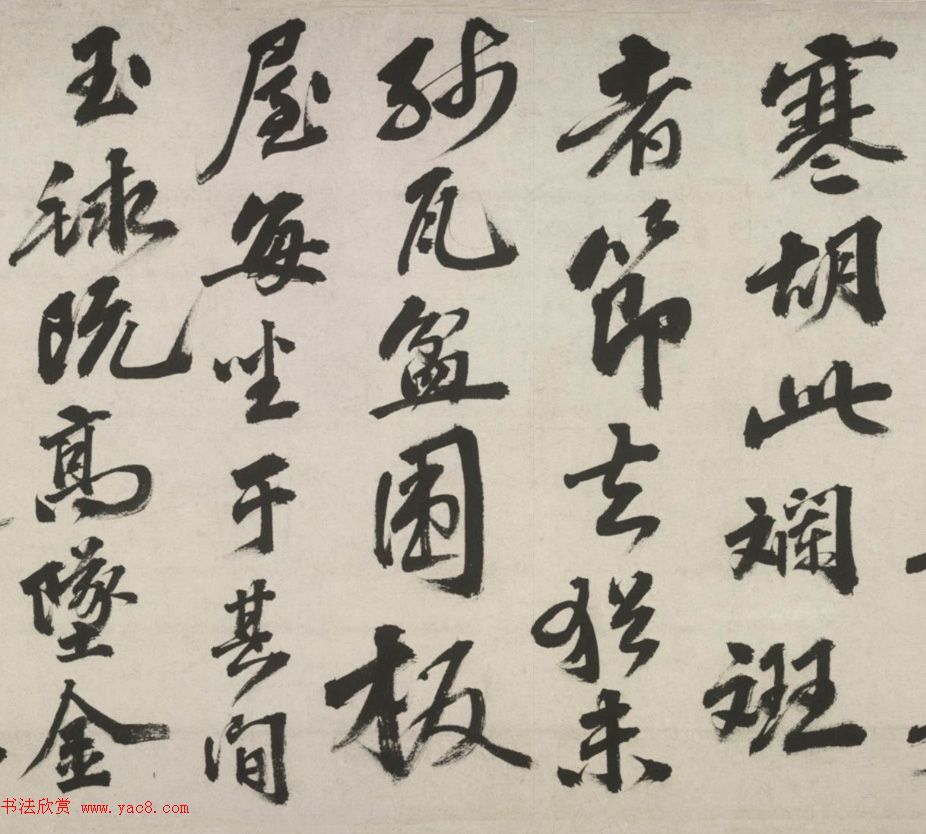 寒胡此斕斑
者節去猶未
殘瓦盆圍板
屋每坐于其間
玉毬既高墜金
书法欣赏 www.yac8.com